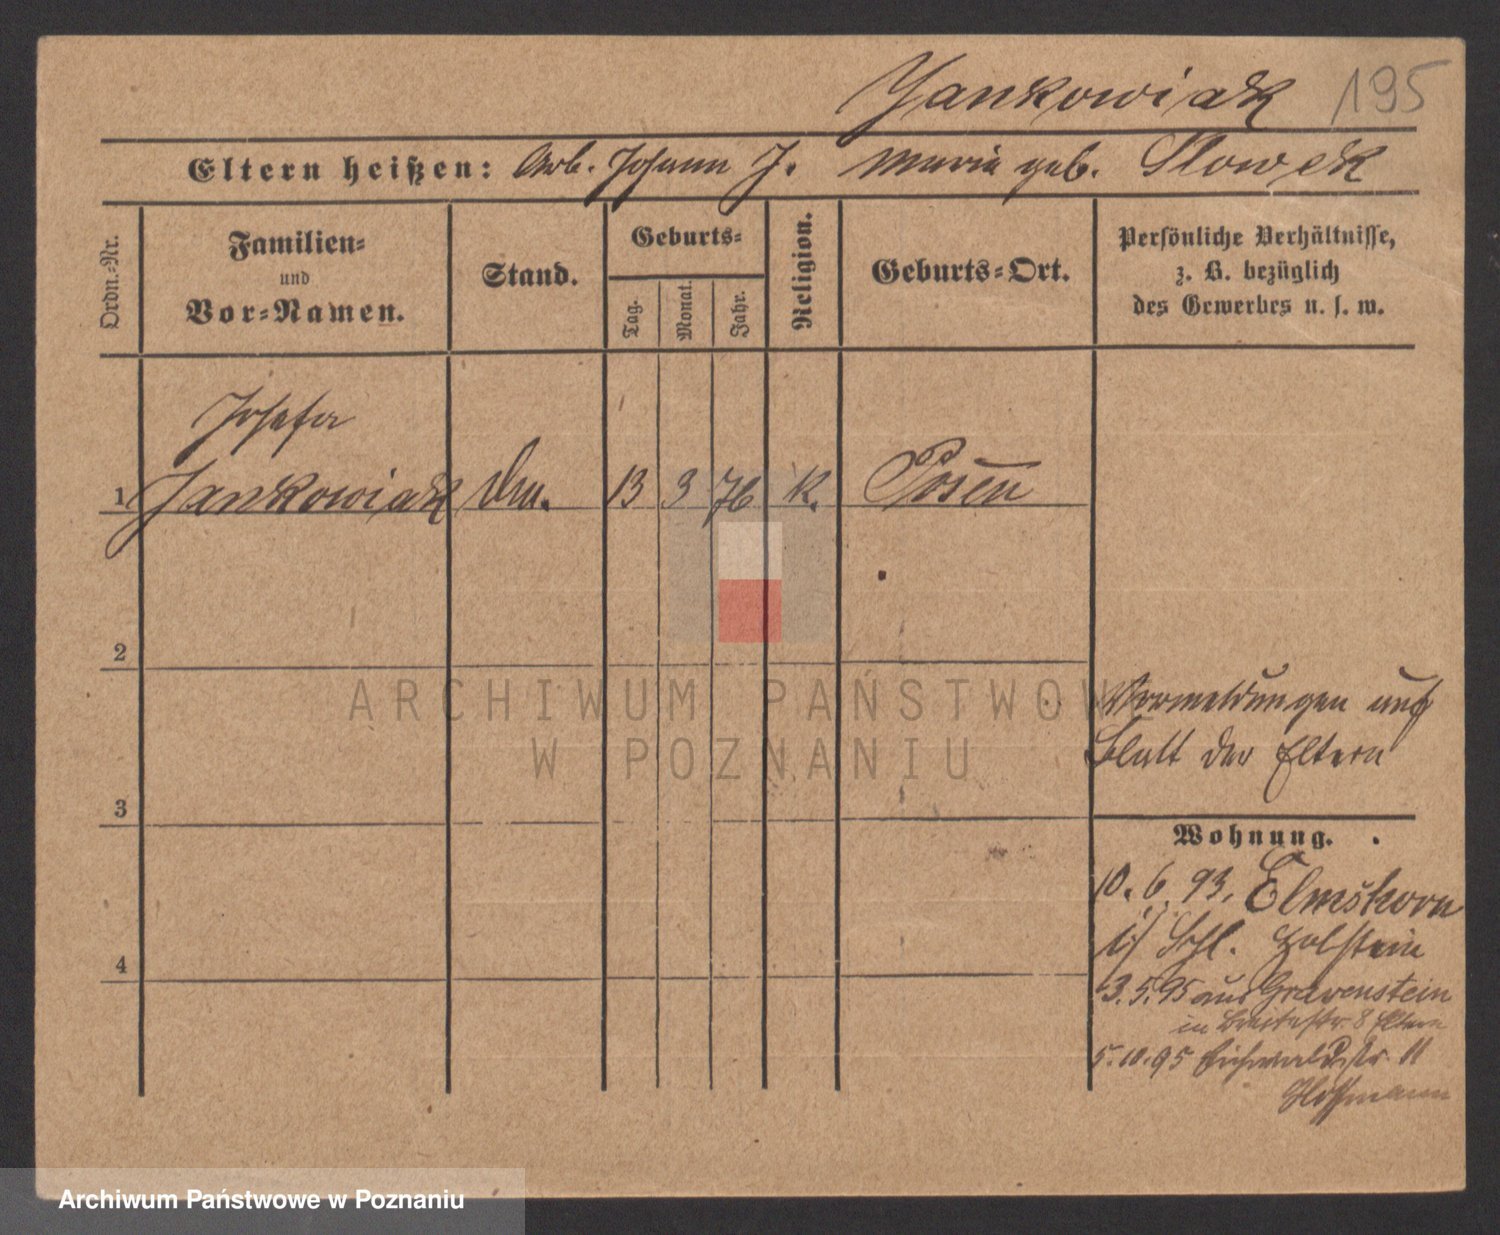 Jankowiak 195
Eltern heißen: Arb. Johann J. Maria geb. Slowek
Ordn.-Nr.
Familien-
und
Vor-Namen.
Stand.
Geburts-
Tag.
Monat.
Jahr.
Religion.
Geburts-Ort.
Persönliche Verhältnisse,
z. B. bezüglich
des Gewerbes u. s. w.
Josefa
1 Jankowiak 13 3 76 K. Posen
2
ARCHIWUM PAŃSTWOWE
W POZNANIU
Vormeldungen auf
Blatt der Eltern
3
Wohnung.
10. 6. 93. Elmshorn
i/ Schl. Holstein
4
3. 5. 95 aus Gravenstein
in Breitestr. 8 Eltern
5. 10. 95 Eichwaldstr. 11
Hoffmann
Archiwum Państwowe w Poznaniu